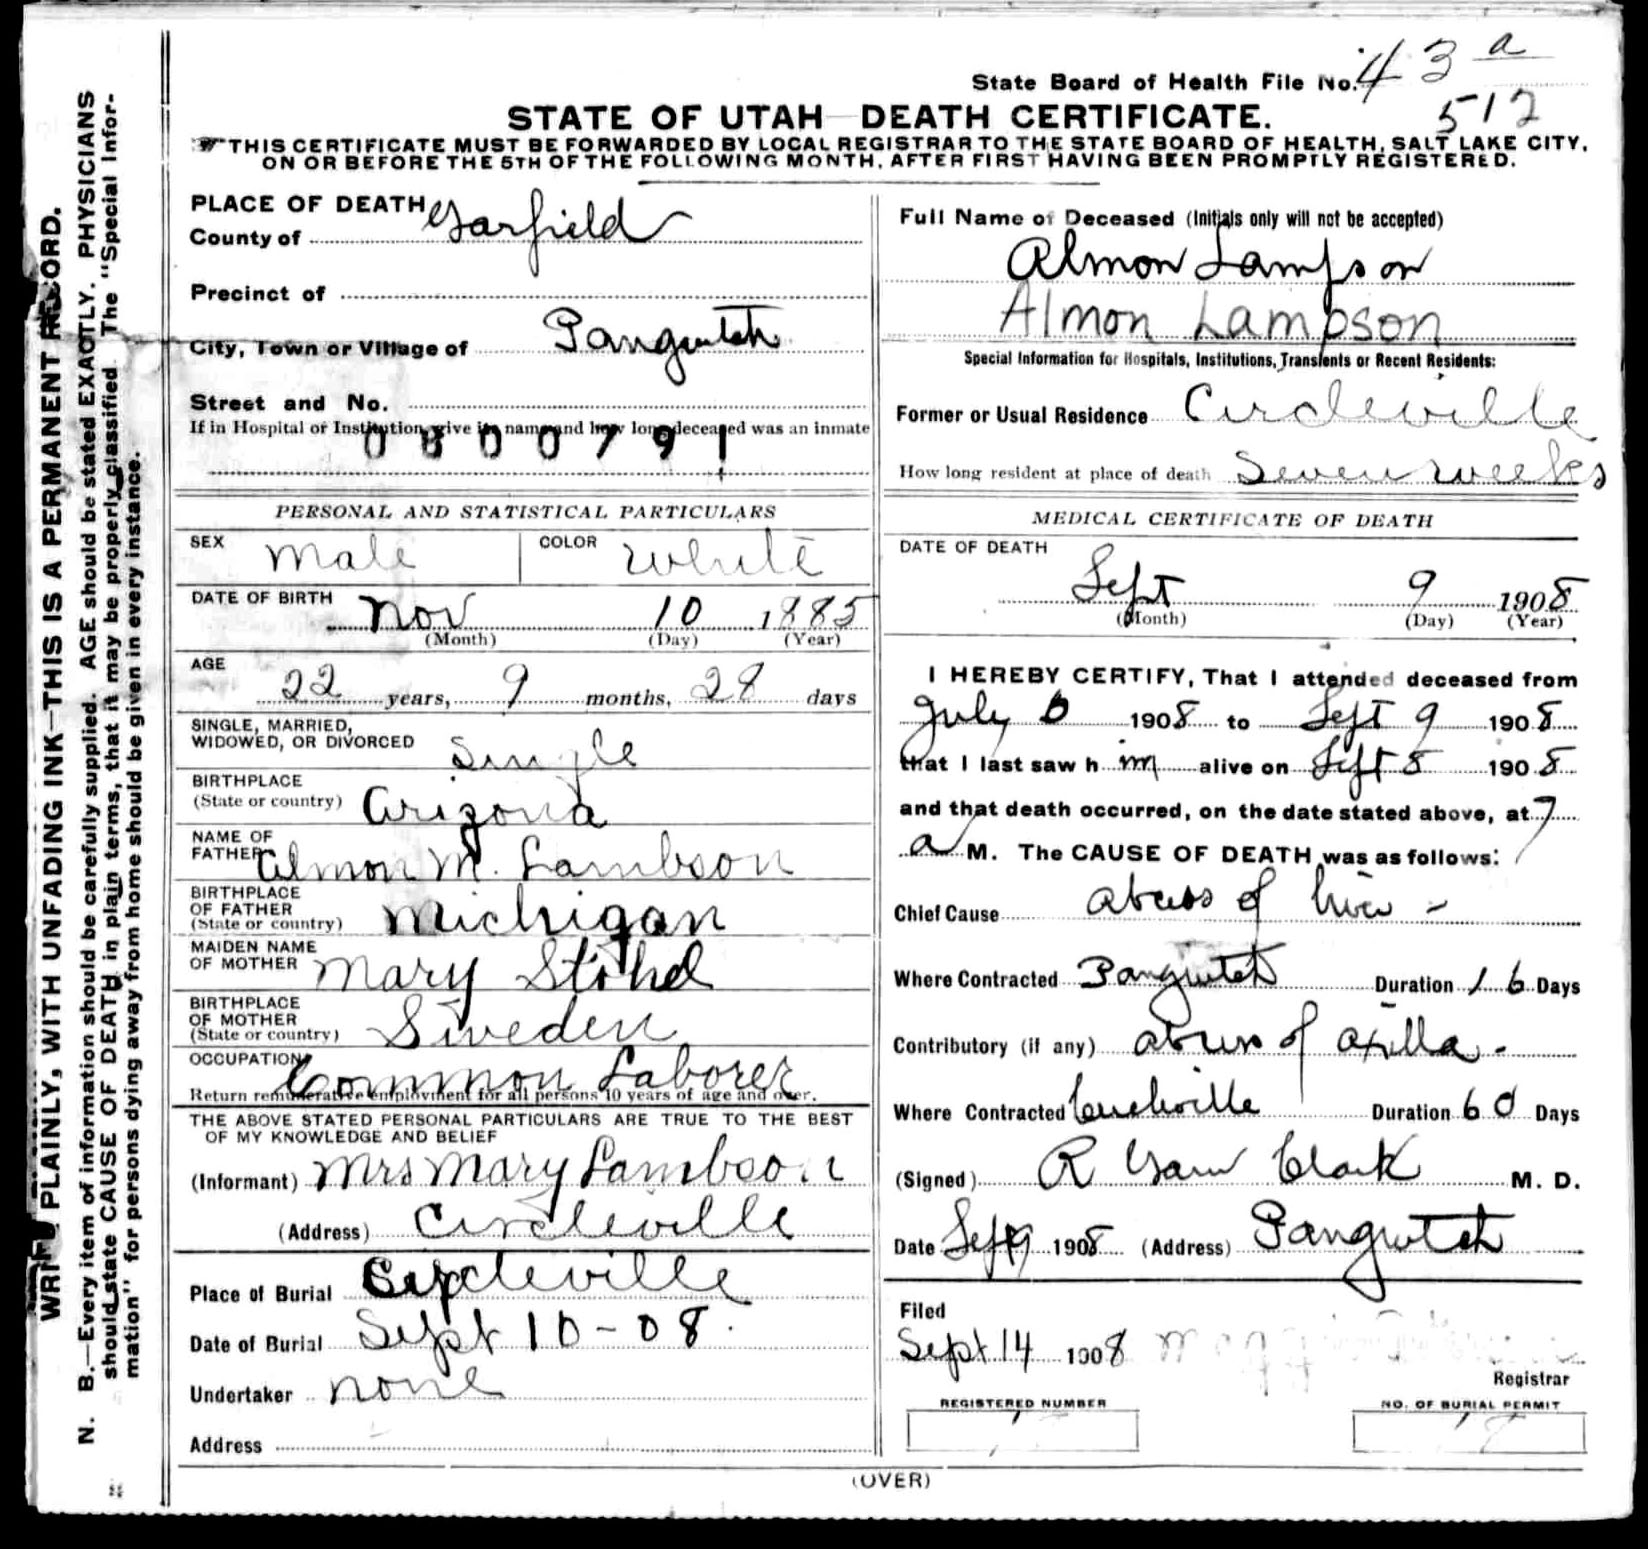 State Board of Health File No. 43 a
512
STATE OF UTAH—DEATH CERTIFICATE.
THIS CERTIFICATE MUST BE FORWARDED BY LOCAL REGISTRAR TO THE STATE BOARD OF HEALTH, SALT LAKE CITY,
ON OR BEFORE THE 5TH OF THE FOLLOWING MONTH, AFTER FIRST HAVING BEEN PROMPTLY REGISTERED.
WRITE PLAINLY, WITH UNFADING INK—THIS IS A PERMANENT RECORD.
N. B.—Every item of information should be carefully supplied. AGE should be stated EXACTLY. PHYSICIANS
should state CAUSE OF DEATH in plain terms, that it may be properly classified. The "Special Infor-
mation" for persons dying away from home should be given in every instance.
PLACE OF DEATH
County of Garfield
Precinct of
City, Town or Village of Panguitch
Street and No.
If in Hospital or Institution, give its name and how long deceased was an inmate
0800791
PERSONAL AND STATISTICAL PARTICULARS
SEX Male COLOR White
DATE OF BIRTH Nov 10 1885
(Month) (Day) (Year)
AGE 22 years, 9 months, 28 days
SINGLE, MARRIED,
WIDOWED, OR DIVORCED Single
BIRTHPLACE
(State or country) Arizona
NAME OF
FATHER Almon M. Lambson
BIRTHPLACE
OF FATHER
(State or country) Michigan
MAIDEN NAME
OF MOTHER Mary Stohd
BIRTHPLACE
OF MOTHER
(State or country) Sweden
OCCUPATION Common Laborer
Return remunerative employment for all persons 10 years of age and over.
THE ABOVE STATED PERSONAL PARTICULARS ARE TRUE TO THE BEST
OF MY KNOWLEDGE AND BELIEF
(Informant) Mrs Mary Lambson
(Address) Circleville
Place of Burial Circleville
Date of Burial Sept 10-08.
Undertaker none
Address
Full Name of Deceased (Initials only will not be accepted)
Almon Lampson
Almon Lampson
Special Information for Hospitals, Institutions, Transients or Recent Residents:
Former or Usual Residence Circleville
How long resident at place of death Seven weeks
MEDICAL CERTIFICATE OF DEATH
DATE OF DEATH
Sept 9 1908
(Month) (Day) (Year)
I HEREBY CERTIFY, That I attended deceased from
July 6 1908 to Sept 9 1908
that I last saw him alive on Sept 8 1908
and that death occurred, on the date stated above, at 7
a M. The CAUSE OF DEATH was as follows:
Chief Cause abcess of liver
Where Contracted Panguitch Duration 16 Days
Contributory (if any) abcess of axilla.
Where Contracted Circleville Duration 60 Days
(Signed) R Garn Clark M. D.
Date Sept 9 1908 (Address) Panguitch
Filed
Sept 14 1908
Registrar
REGISTERED NUMBER
NO. OF BURIAL PERMIT
(OVER)